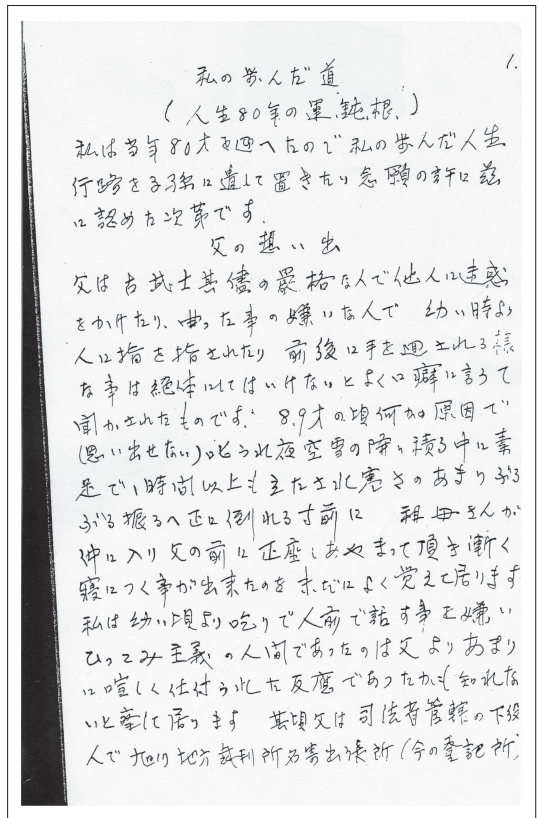 1.
私の歩んだ道
(人生80年の運、鈍、根、)
私は当年80才を迎へたので私の歩んだ人生
行路を子孫に遺して置きたい念願の許に茲
に認めた次第です.
父の想い出
父は古武士其儘の厳格な人で他人に迷惑
をかけたり、曲った事の嫌いな人で 幼い時より
人に指を指されたり 前後に手を廻される様
な事は絶体にしてはいけないとよく口癖に言ろて
聞かされたものです. 8.9才の頃何か原因で
(思い出せない)叱られ夜空雪の降り積る中に素
足で1時間以上も立たされ寒さのあまりぶる
ぶる振るへ正に倒れる寸前に 祖母さんが
仲に入り父の前に正座しあやまって頂き漸く
寝につく事が出来たのを未だによく覚えて居ります
私は幼い頃より吃りで人前で話す事を嫌い
ひっこみ主義の人間であったのは父よりあまり
に喧しく仕付られた反應であったかも知れな
いと 居ります 其頃父は司法省管轄の下役
人で旭川地方裁判所名寄出張所(今の登記所)